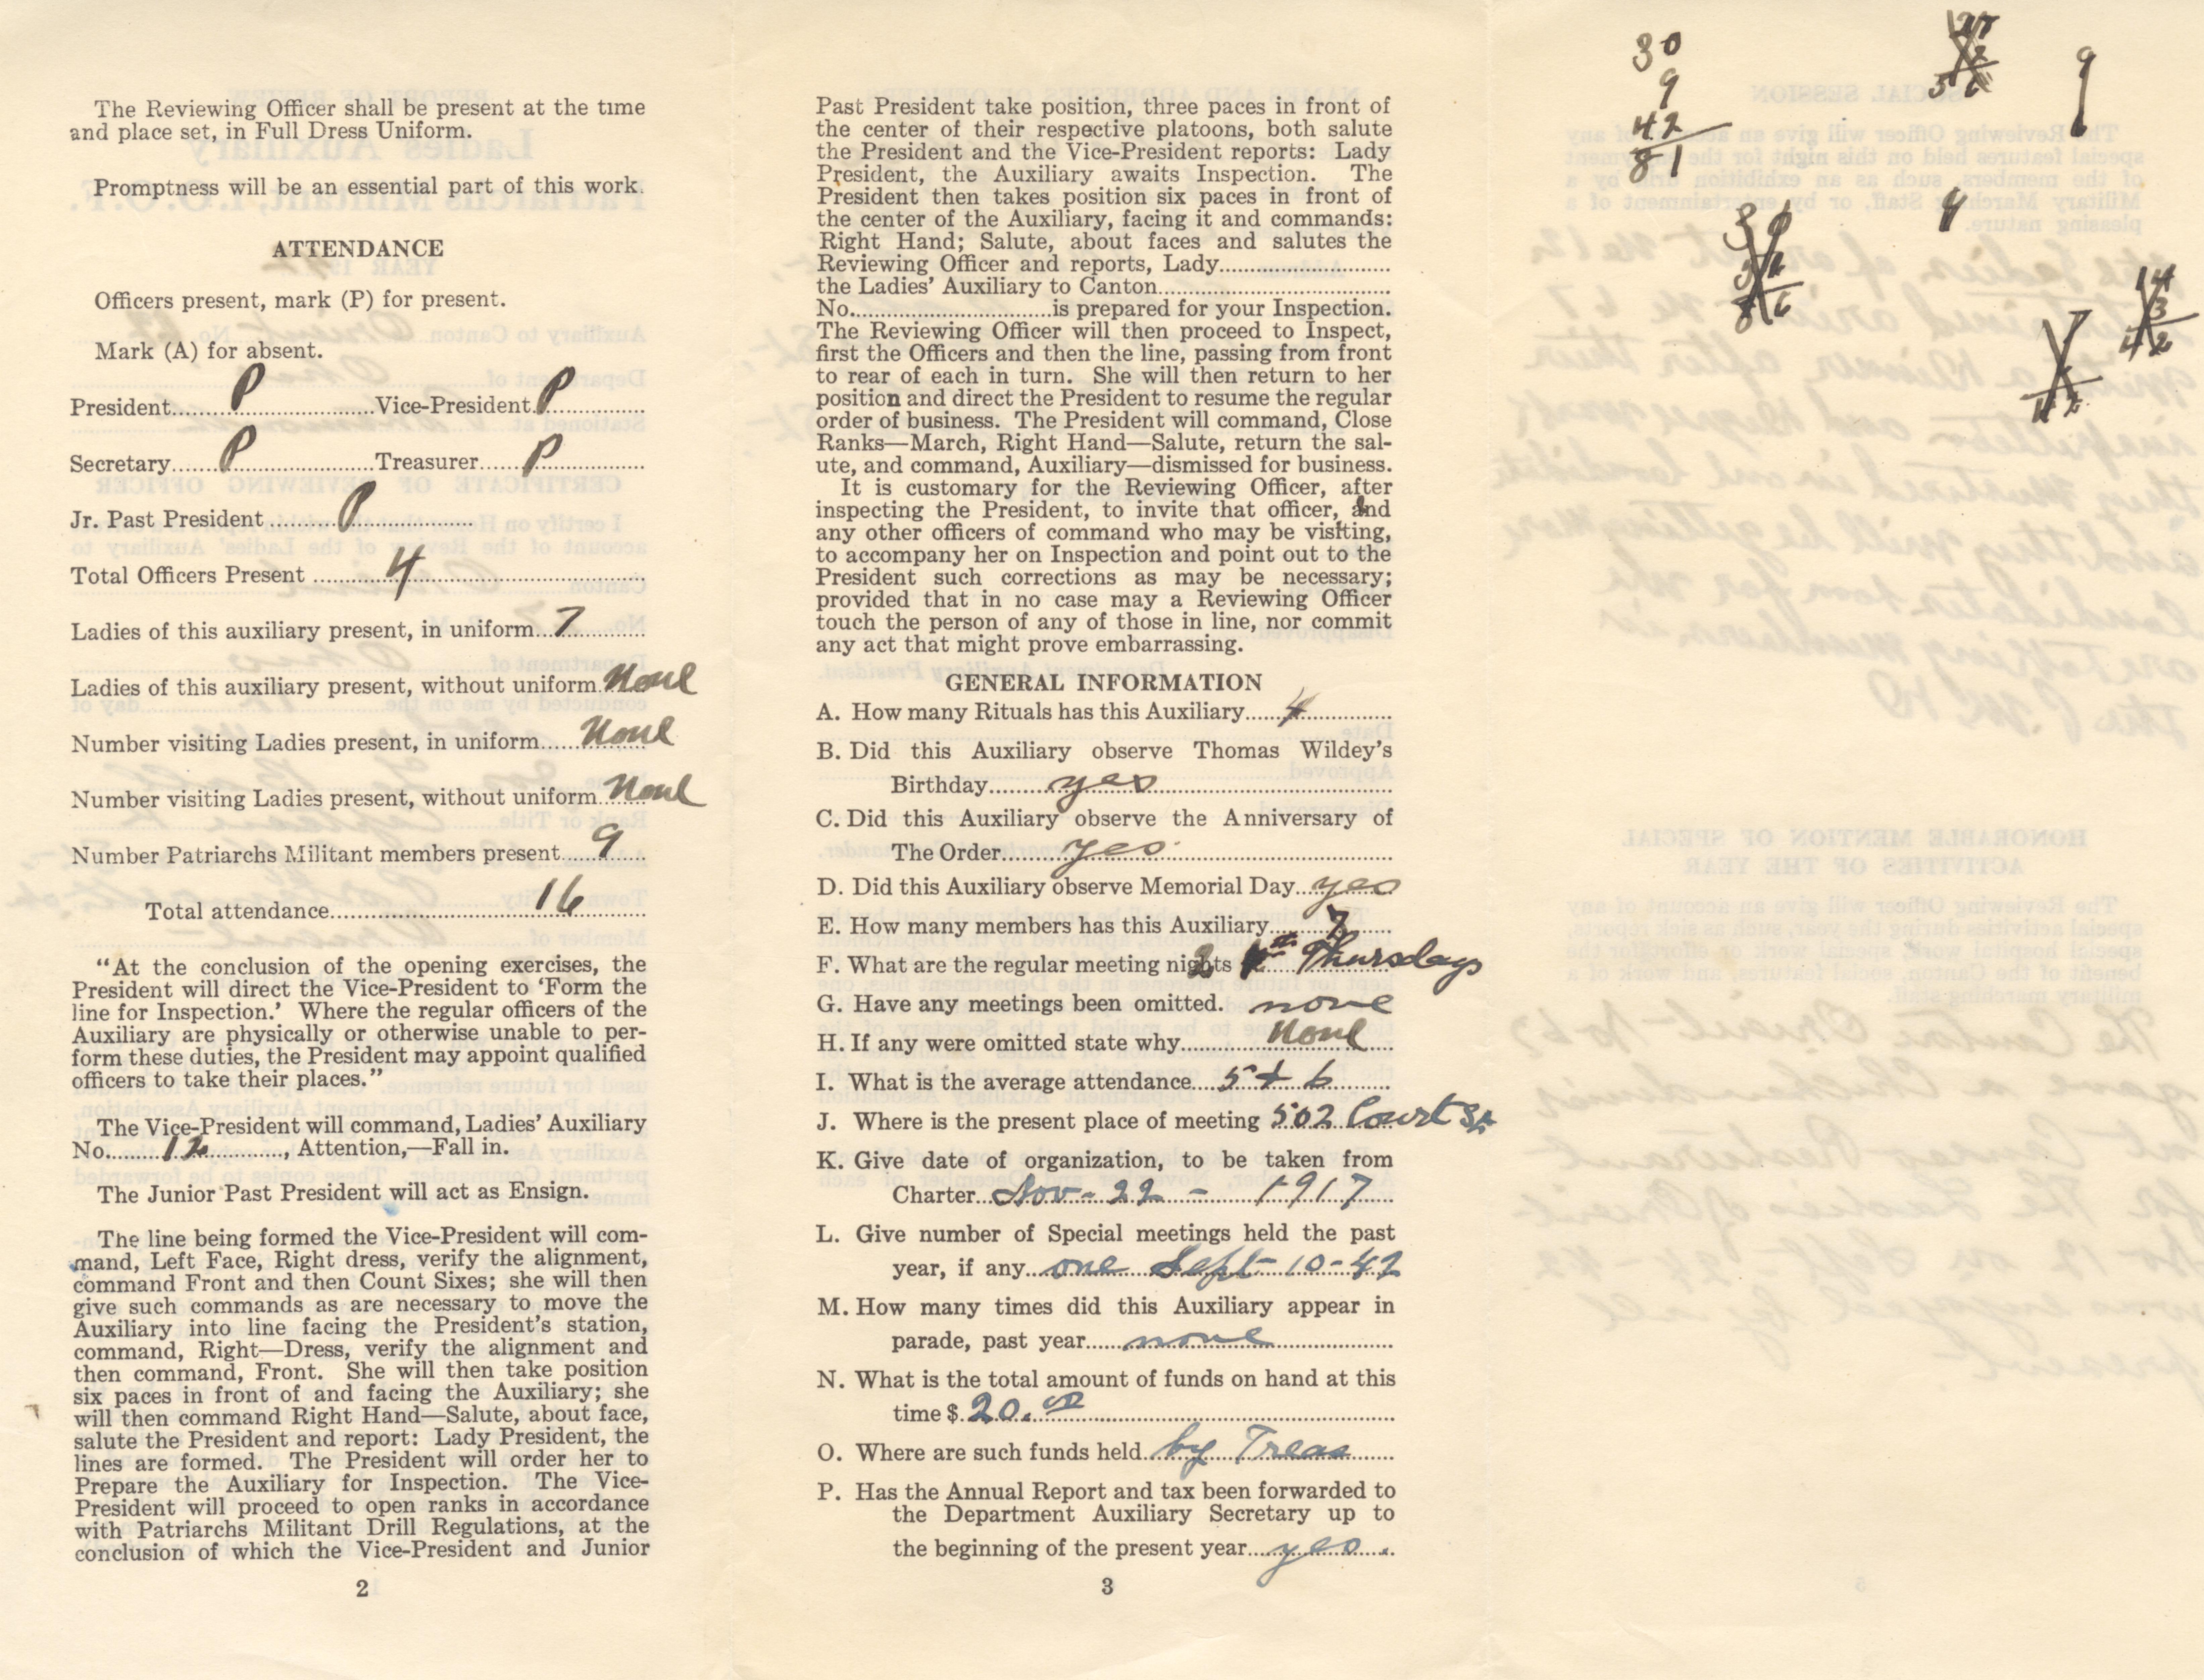 The Reviewing Officer shall be present at the time
and place set, in Full Dress Uniform.
Promptness will be an essential part of this work.
ATTENDANCE
Officers present, mark (P) for present.
Mark (A) for absent.
President P Vice-President P
Secretary P Treasurer P
Jr. Past President P
Total Officers Present 4
Ladies of this auxiliary present, in uniform 7
Ladies of this auxiliary present, without uniform None
Number visiting Ladies present, in uniform None
Number visiting Ladies present, without uniform None
Number Patriarchs Militant members present 9
Total attendance 16
"At the conclusion of the opening exercises, the
President will direct the Vice-President to 'Form the
line for Inspection.' Where the regular officers of the
Auxiliary are physically or otherwise unable to per-
form these duties, the President may appoint qualified
officers to take their places."
The Vice-President will command, Ladies' Auxiliary
No. 12, Attention,—Fall in.
The Junior Past President will act as Ensign.
The line being formed the Vice-President will com-
mand, Left Face, Right dress, verify the alignment,
command Front and then Count Sixes; she will then
give such commands as are necessary to move the
Auxiliary into line facing the President's station,
command, Right—Dress, verify the alignment and
then command, Front. She will then take position
six paces in front of and facing the Auxiliary; she
will then command Right Hand—Salute, about face,
salute the President and report: Lady President, the
lines are formed. The President will order her to
Prepare the Auxiliary for Inspection. The Vice-
President will proceed to open ranks in accordance
with Patriarchs Militant Drill Regulations, at the
conclusion of which the Vice-President and Junior
2
Past President take position, three paces in front of
the center of their respective platoons, both salute
the President and the Vice-President reports: Lady
President, the Auxiliary awaits Inspection. The
President then takes position six paces in front of
the center of the Auxiliary, facing it and commands:
Right Hand; Salute, about faces and salutes the
Reviewing Officer and reports, Lady
the Ladies' Auxiliary to Canton
No. is prepared for your Inspection.
The Reviewing Officer will then proceed to Inspect,
first the Officers and then the line, passing from front
to rear of each in turn. She will then return to her
position and direct the President to resume the regular
order of business. The President will command, Close
Ranks—March, Right Hand—Salute, return the sal-
ute, and command, Auxiliary—dismissed for business.
It is customary for the Reviewing Officer, after
inspecting the President, to invite that officer, and
any other officers of command who may be visiting,
to accompany her on Inspection and point out to the
President such corrections as may be necessary;
provided that in no case may a Reviewing Officer
touch the person of any of those in line, nor commit
any act that might prove embarrassing.
GENERAL INFORMATION
A. How many Rituals has this Auxiliary 4
B. Did this Auxiliary observe Thomas Wildey's
Birthday yes
C. Did this Auxiliary observe the Anniversary of
The Order yes
D. Did this Auxiliary observe Memorial Day yes
E. How many members has this Auxiliary 7
F. What are the regular meeting nights Thursdays
G. Have any meetings been omitted. none
H. If any were omitted state why None
I. What is the average attendance 5 + 6
J. Where is the present place of meeting 502 Court St
K. Give date of organization, to be taken from
Charter Nov - 22 - 1917
L. Give number of Special meetings held the past
year, if any one Sept 10-42
M. How many times did this Auxiliary appear in
parade, past year none
N. What is the total amount of funds on hand at this
time $ 20.00
O. Where are such funds held by Treas
P. Has the Annual Report and tax been forwarded to
the Department Auxiliary Secretary up to
the beginning of the present year yes.
3
30
9
42
81
9
9
14
3
42